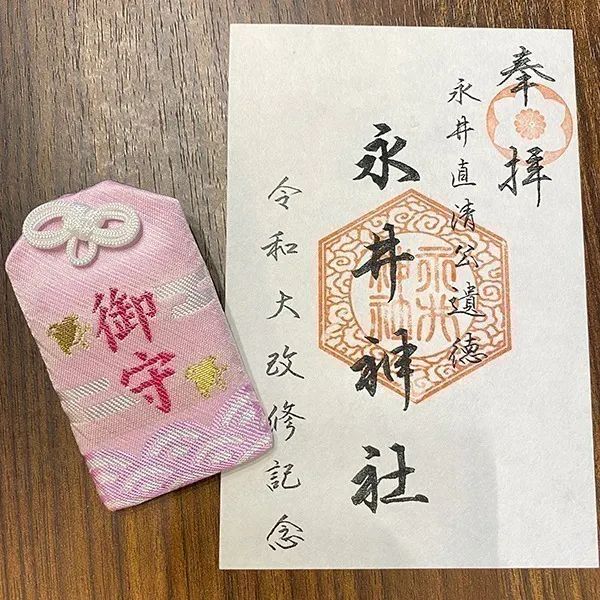 奉拝
永井直清公遺徳
永井神社
永井神社
令和大改修記念
御守